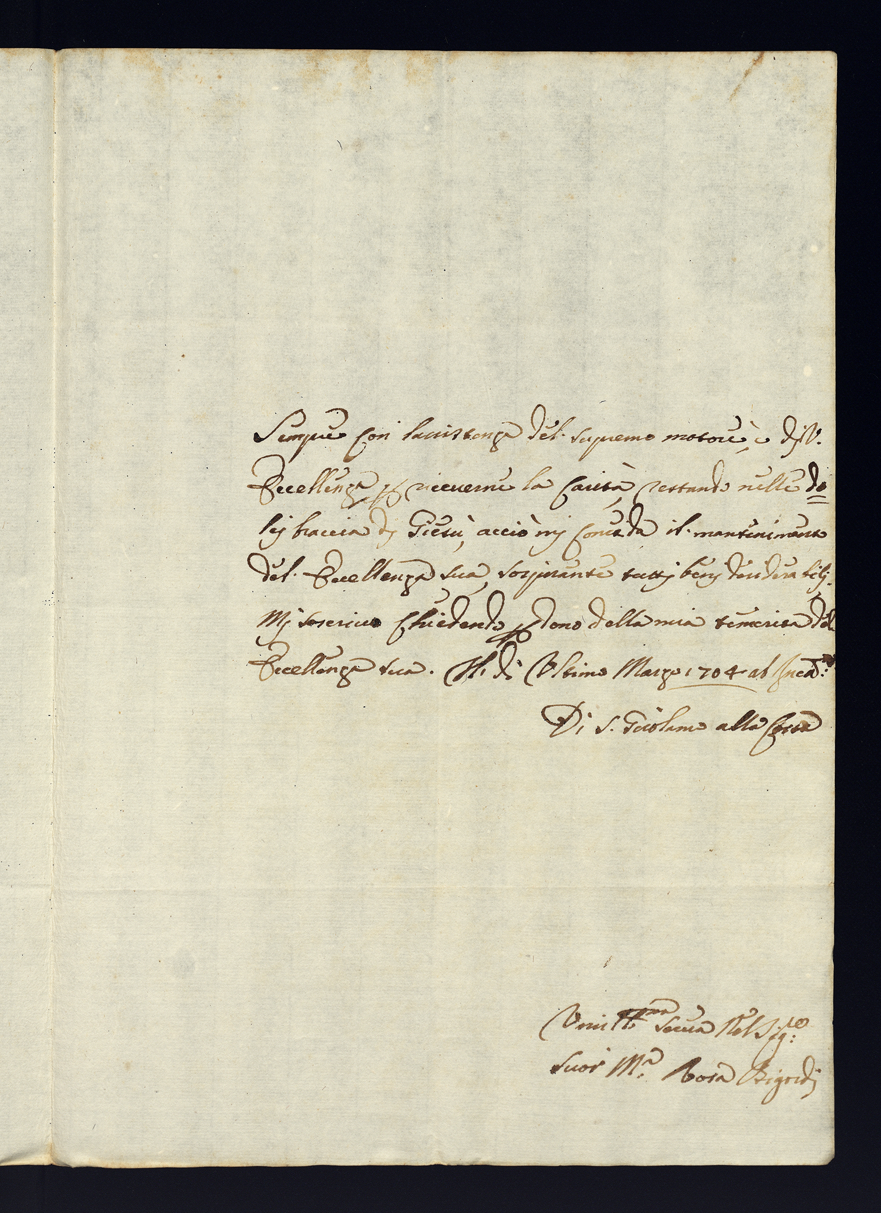 Sempre con lassistenza del supremo motore, e di V.
Eccellenza, p riceverne la Carità, restando nelle do=
lij braccia di Giesù, acciò mi conceda il mantinimento
del Eccellenza sua, sospirante tutti beni desiderabilj.
Mi soscrivo Chiedendo pdono della mia temerita del
Eccellenza sua. li di Ultimo Marzo 1704 ab Inca:
Di S. Girolamo alla Costa
Umill.ma Serva Nel Sig:re
Suor M.a Rosa